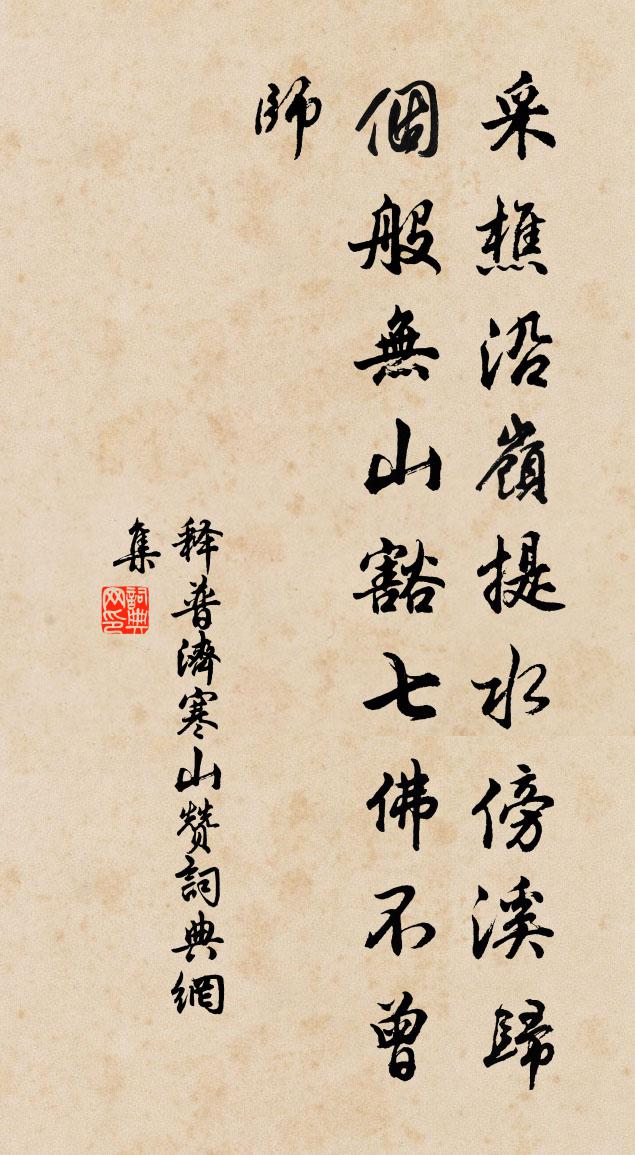 采樵沿嶺提水傍溪歸
個般無山豁七佛不曾
師
释普濟寒山赞詞典網
集
詞典
网印